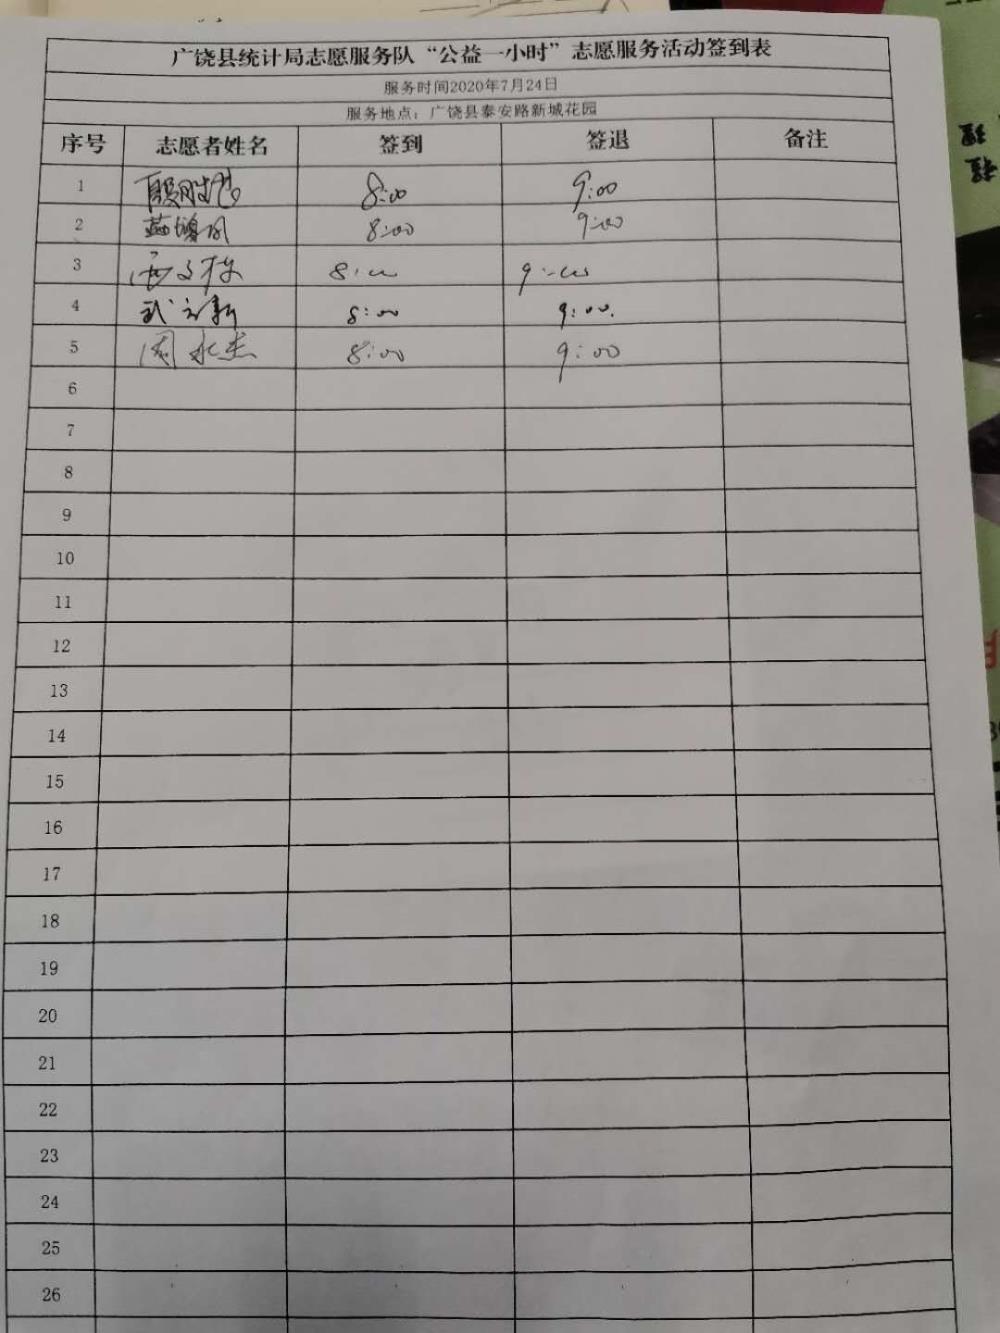 广饶县统计局志愿服务队“公益一小时”志愿服务活动签到表
服务时间2020年7月24日
服务地点：广饶县泰安路新城花园
序号 志愿者姓名 签到 签退 备注
1 8:00 9:00
2 8:00 9:00
3 8:00 9:00
4 武立新 8:00 9:00
5 周永杰 8:00 9:00
6
7
8
9
10
11
12
13
14
15
16
17
18
19
20
21
22
23
24
25
26